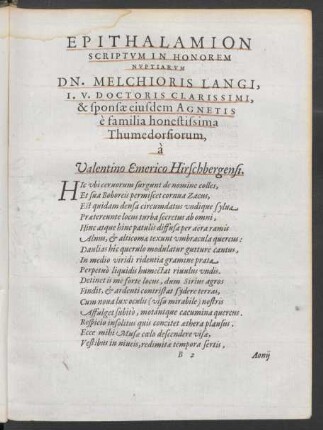 EPITHALAMION
SCRIPTVM IN HONOREM
NVPTIARVM
DN. MELCHIORIS LANGI,
I. V. DOCTORIS CLARISSIMI,
& sponsæ eiusdem AGNETIS
è familia honestissima
Thumedorfiorum,
à
Valentino Emerico Hirschbergensi.
HIc vbi ceruorum surgunt de nomine colles,
Et sua Boboreis permiscet cornua Zacus,
Est quidam densa circumdatus vndique sylua
Prætereunte locus turba secretus ab omni,
Hinc atque hinc patulis diffusa per aera ramis
Alnus, & alticoma texunt vmbracula quercus:
Daulias hic querulo modulatur gutture cantus,
In medio viridi ridentia gramine prata
Perpetuò liquidis humectat riuulus vndis.
Detinet is me forte locus, dum Sirius agros
Findit, & ardenti contristat sydere terras,
Cum noua lux oculis (visu mirabile) nostris
Affulget subitò, motánque cacumina quercus.
Respicio insolitus quis concitet æthera plausus.
Ecce mihi Musæ cælo descendere visæ,
Vestibus in niueis, redimitæ tempora sertis.
B 2 Aonij